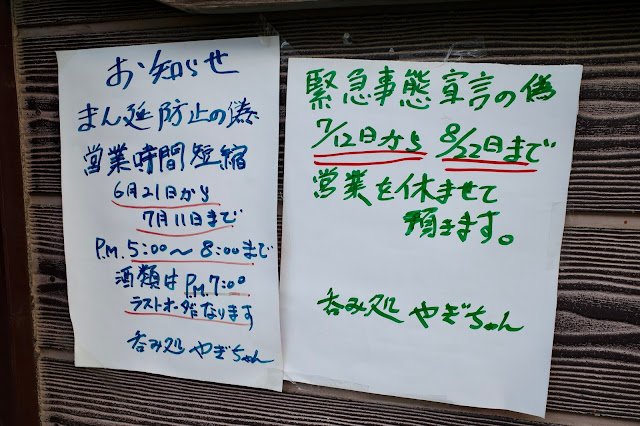 お知らせ
まん延防止の偽
営業時間短縮
6月21日から
7月11日まで
P.M. 5:00～8:00まで
酒類はP.M. 7:00
ラストオーダーになります
呑み処 やぎちゃん
緊急事態宣言の偽
7/12日から 8/22日まで
営業を休ませて
頂きます。
呑み処 やぎちゃん